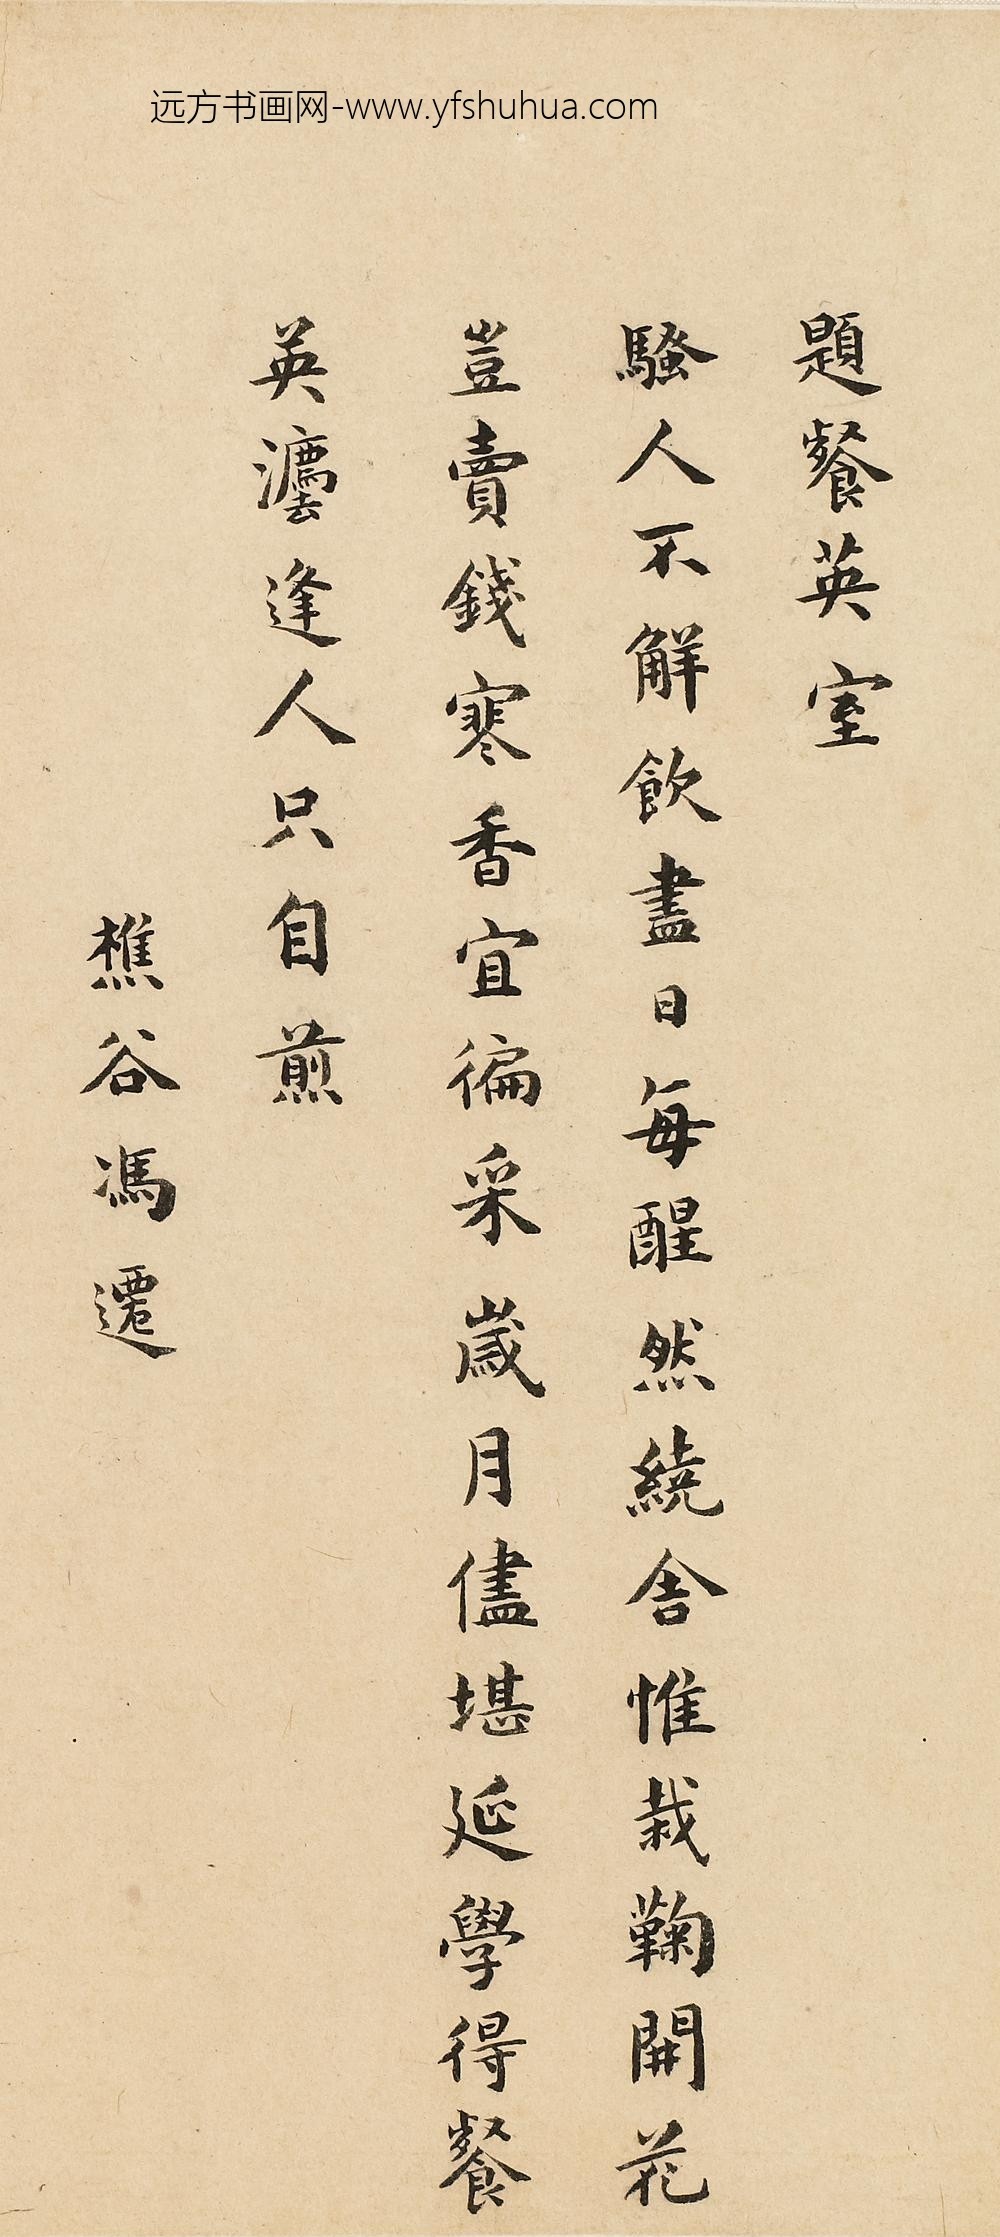 远方书画网-www.yfshuhua.com
題餐英室
騷人不解飲盡日每醒然繞舍惟栽鞠開花
豈賣錢寒香宜徧采歲月儘堪延學得餐
英灋逢人只自煎
樵谷馮遷